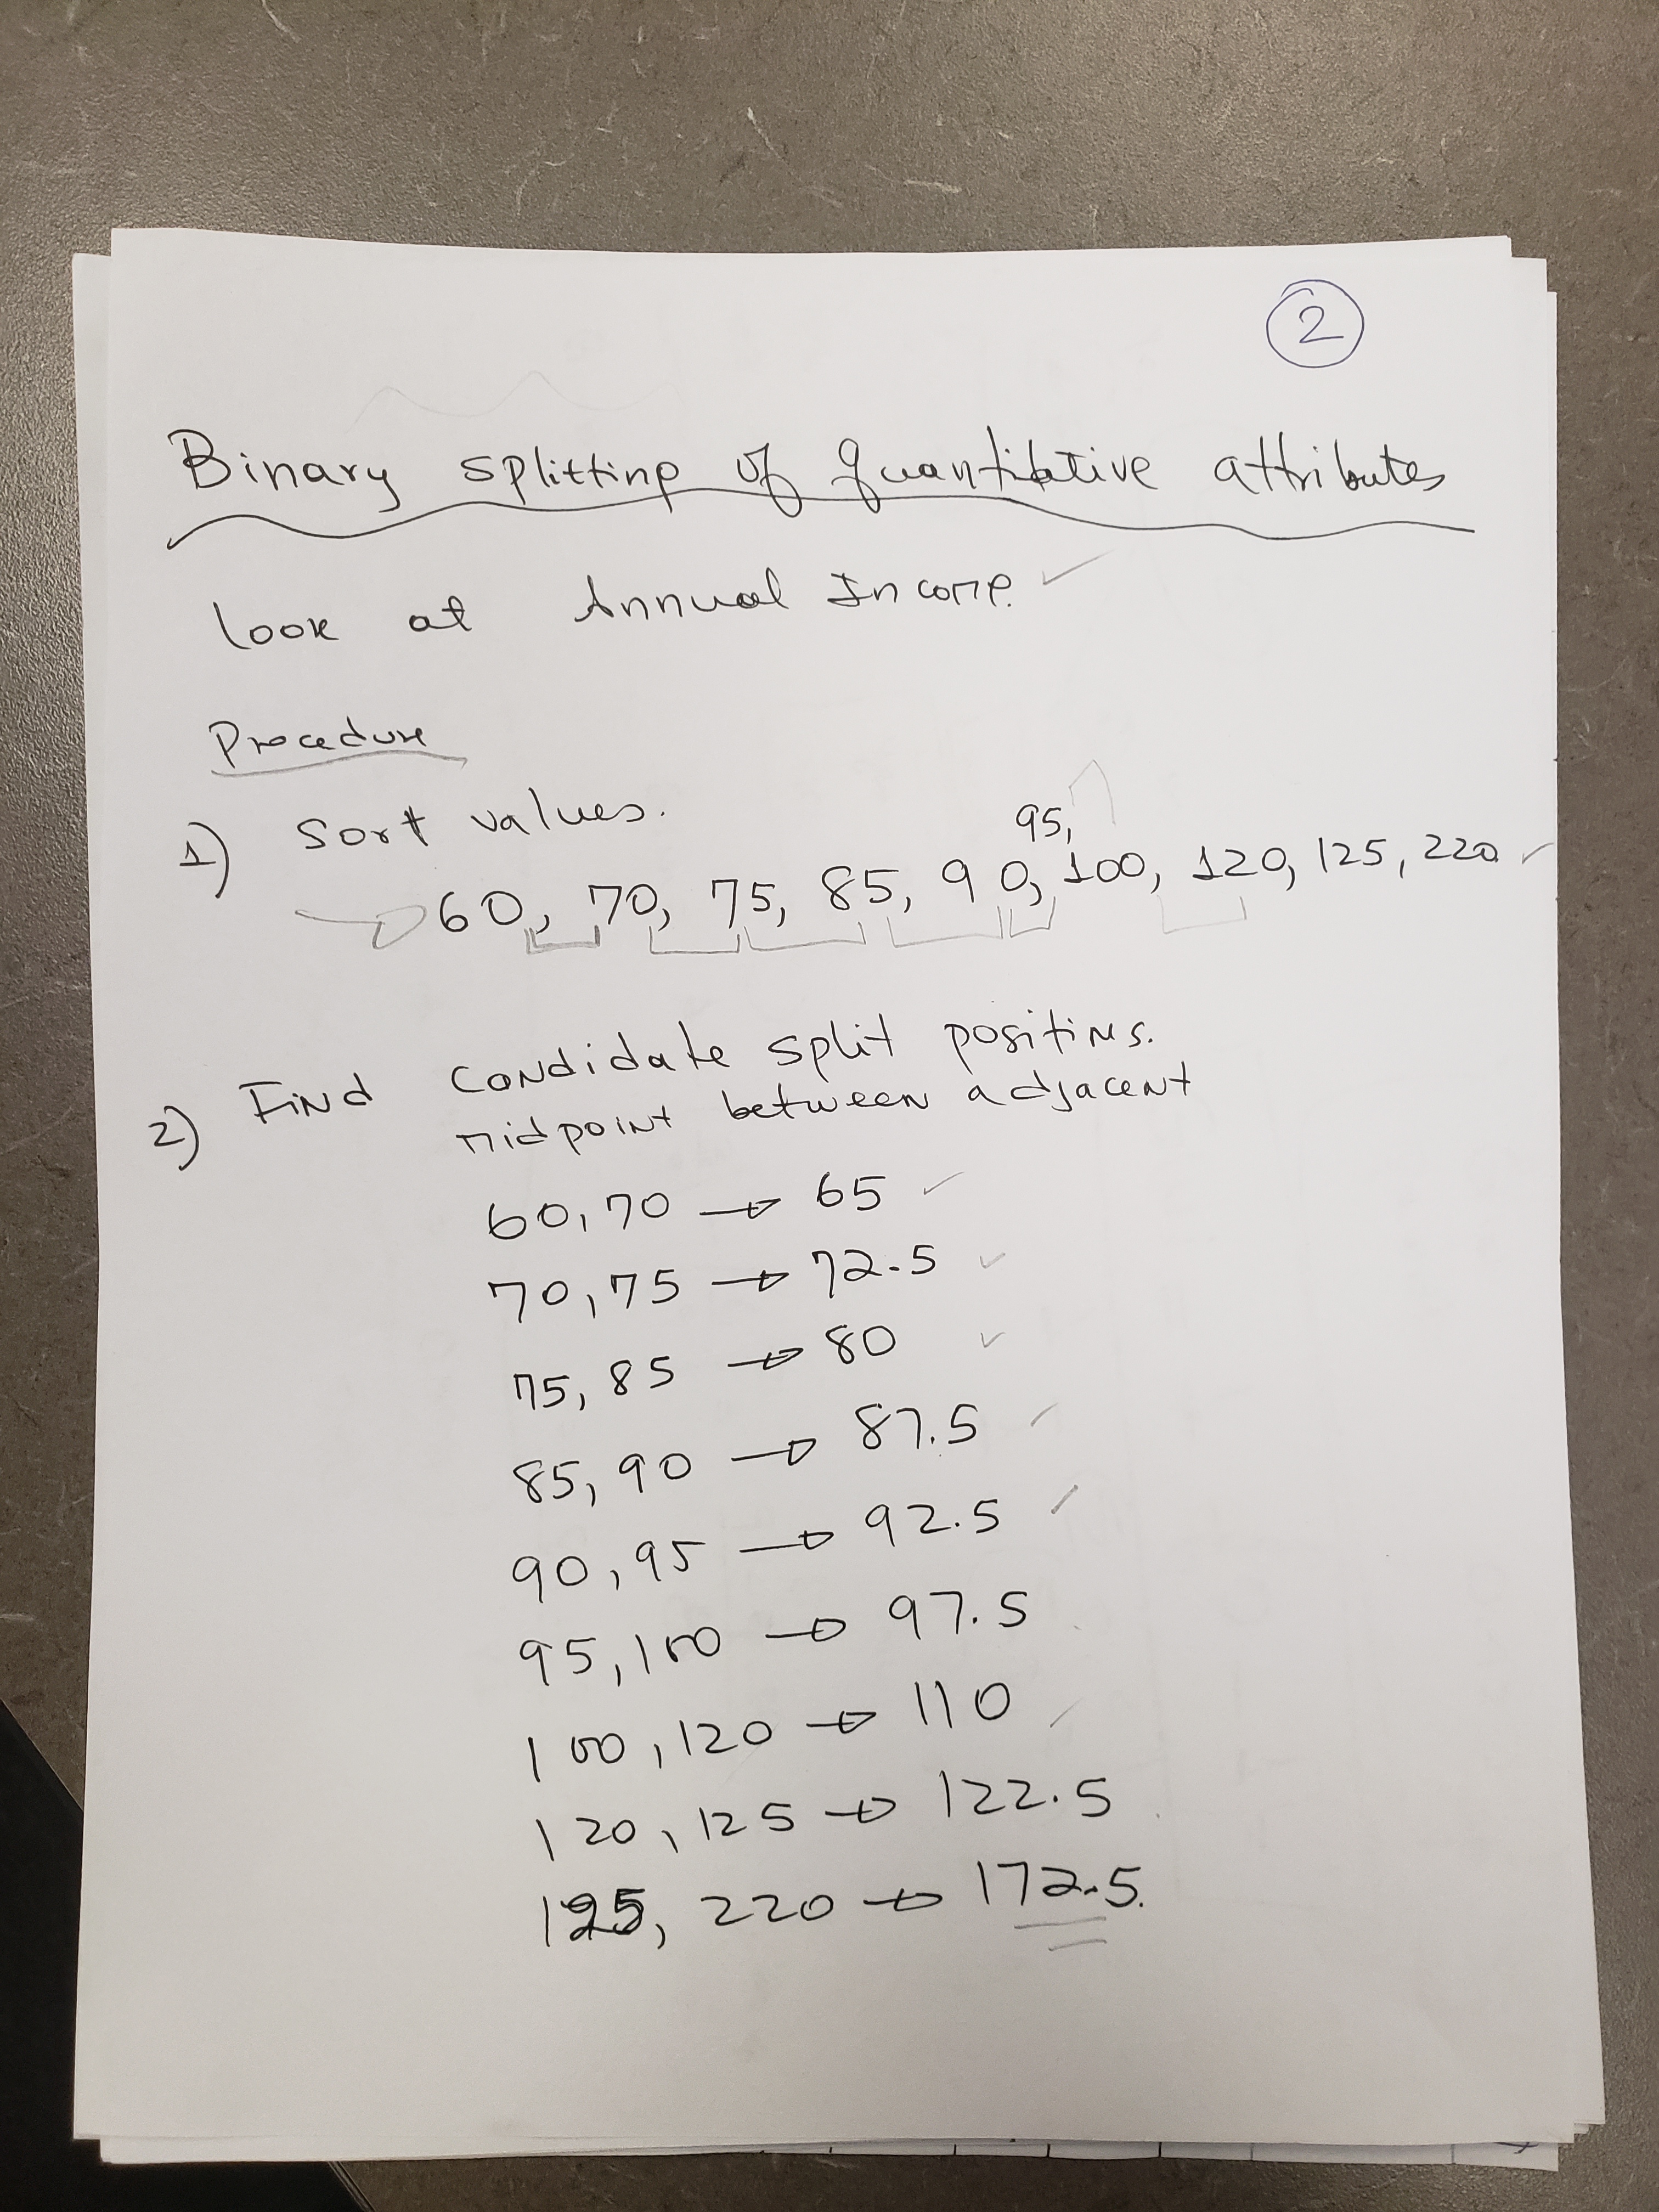 2
Binary splitting of quantitative attributes
Look at Annual Income.
Procedure
1) Sort values.
95,
60, 70, 75, 85, 90, 100, 120, 125, 220
2) Find candidate split positions.
midpoint between adjacent
60, 70 → 65
70, 75 → 72.5
75, 85 → 80
85, 90 → 87.5
90, 95 → 92.5
95, 100 → 97.5
100, 120 → 110
120, 125 → 122.5
125, 220 → 172.5.